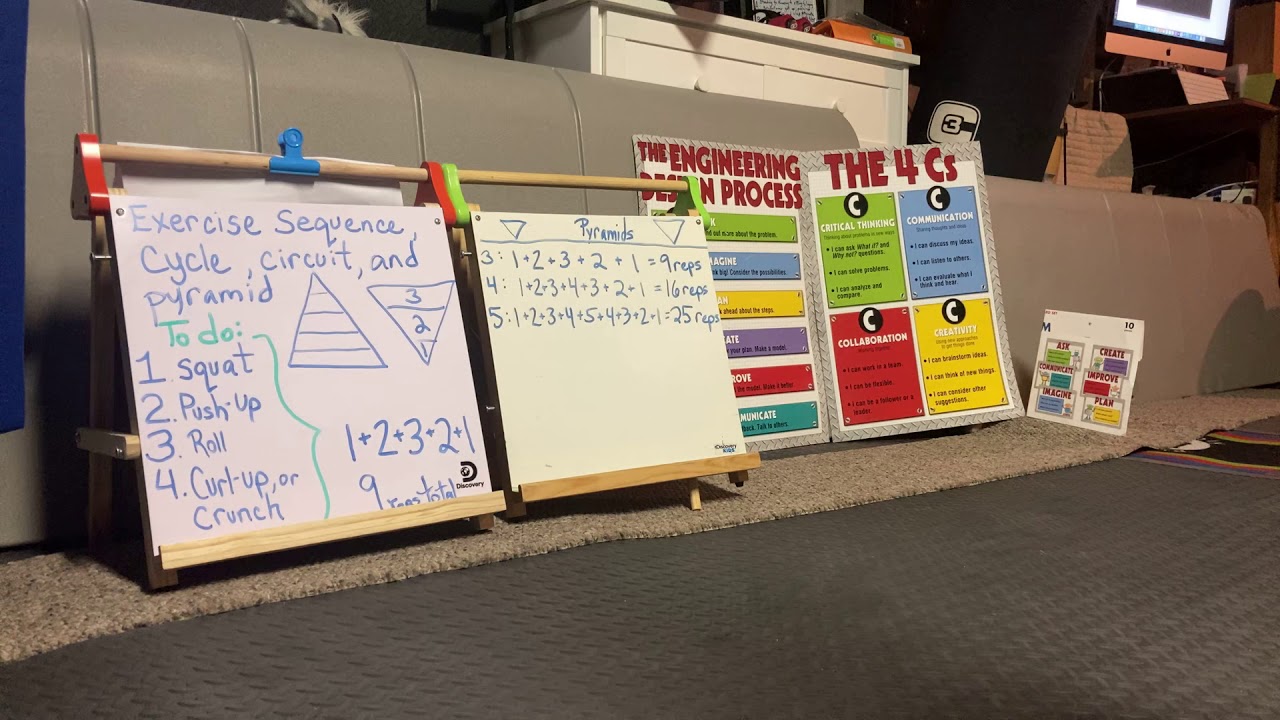 Exercise Sequence,
Cycle, circuit, and
pyramid
To do:
1. squat
2. Push-Up
3. Roll
4. Curl-up, or
Crunch
3
2
1+2+3+2+1
9 reps total
Discovery
Pyramids
3: 1+2+3+2+1=9reps
4: 1+2+3+4+3+2+1=16reps
5: 1+2+3+4+5+4+3+2+1=25 reps
Discovery
THE ENGINEERING
DESIGN PROCESS
out more about the problem.
big! Consider the possibilities.
ahead about the steps.
your plan. Make a model.
the model. Make it better
back. Talk to others.
THE 4 Cs
C
CRITICAL THINKING
Thinking about problems in new ways
• I can ask What if? and
Why not? questions.
• I can solve problems.
• I can analyze and
compare.
C
COMMUNICATION
Sharing thoughts and ideas
• I can discuss my ideas.
• I can listen to others.
• I can evaluate what I
think and hear.
C
COLLABORATION
Working together
• I can work in a team.
• I can be flexible.
• I can be a follower or a
leader.
C
CREATIVITY
Using new approaches
to get things done
• I can brainstorm ideas.
• I can think of new things.
• I can consider other
suggestions.
3
10
M
ASK
COMMUNICATE
IMAGINE
CREATE
IMPROVE
PLAN